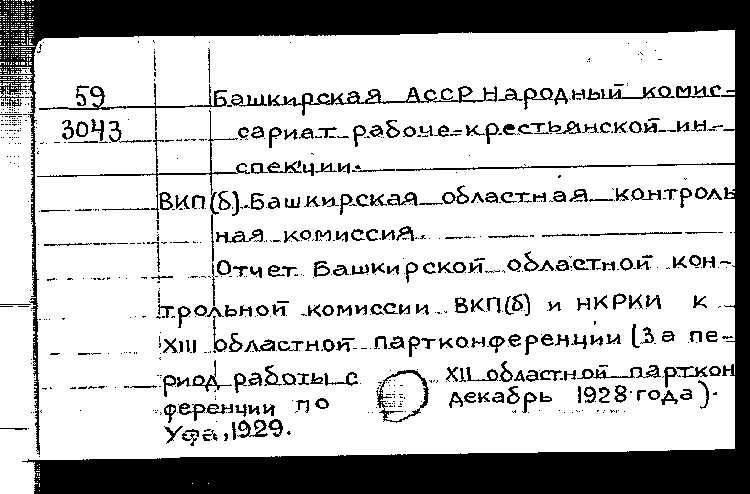 59 Башкирская АССР Народный комис-
3043 сариат рабоче-крестьянской ин-
спекции.
ВКП(б). Башкирская областная контроль
ная комиссия.
Отчет Башкирской областной кон-
трольной комиссии ВКП(б) и НКРКИ к
XIII областной партконференции (За пе-
риод работы с XII областной парткон
ференции по декабрь 1928 года).
Уфа, 1929.